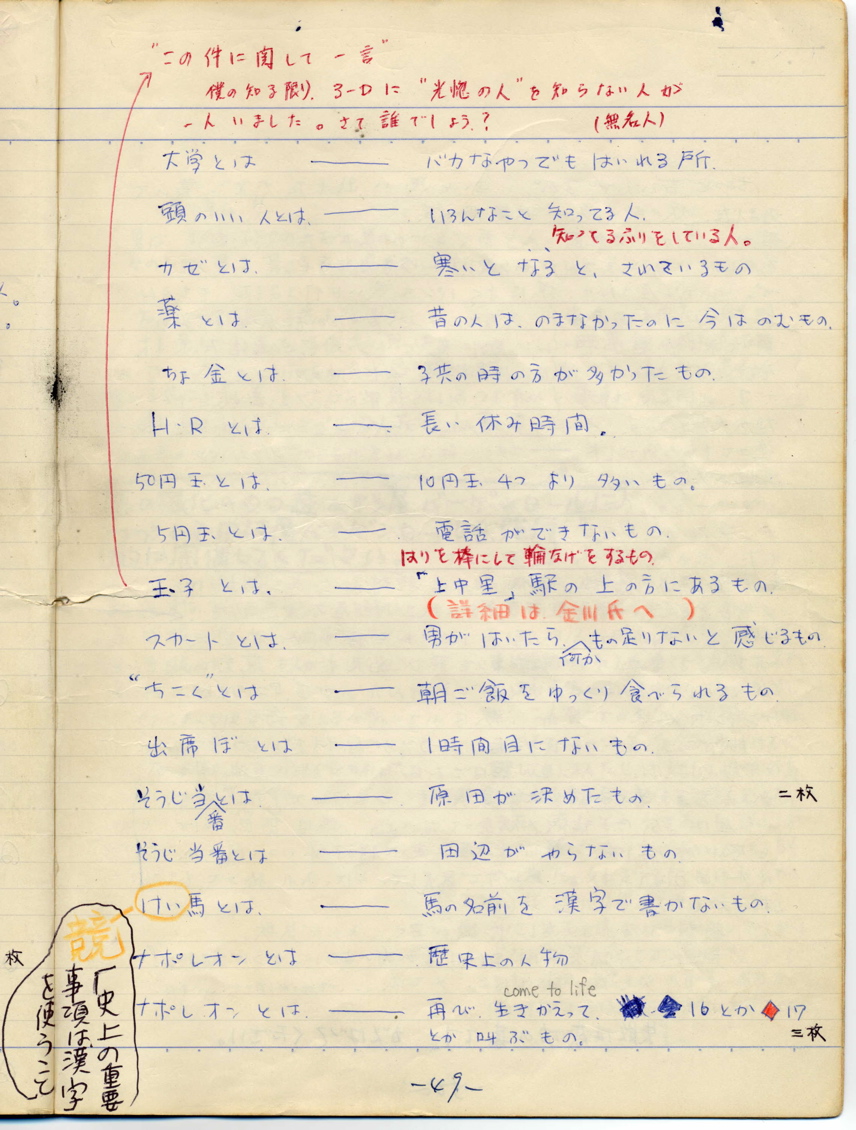 "この件に関して一言"
僕の知る限り、3-Dに "光惚の人" を知らない人が
一人いました。さて誰でしょう? (無名人)
大学とは ―― バカなやつでもはいれる所.
頭のいい人とは ―― いろんなこと知ってる人.
知ってるふりをしている人。
カゼとは ―― 寒いとなると、さいているもの
薬とは ―― 昔の人は、のまなかったのに今はのむもの.
ちょ金とは ―― 子供の時の方が多かったもの.
H・Rとは ―― 長い休み時間。
50円玉とは. ―― 10円玉4つより多いもの。
5円玉とは. ―― 電話ができないもの.
はりを棒にして輪なげをするもの.
玉子とは. ―― 「上中里」駅の上の方にあるもの.
(詳細は金川氏へ)
スカートとは. ―― 男がはいたら、何かもの足りないと感じるもの
"ちこく"とは ―― 朝ご飯をゆっくり食べられるもの
出席ぼとは ―― 1時間目にないもの.
そうじ当番とは ―― 原田が決めたもの. 二枚
そうじ当番とは ―― 田辺がやらないもの
けい馬とは. ―― 馬の名前を漢字で書かないもの.
競
枚
ナポレオンとは ―― 歴史上の人物
ナポレオンとは. ―― 再び、生きかえって、 16とか♦17
come to life
とか叫ぶもの。 三枚
「史上の重要
事項は漢字
を使うこと
-49-